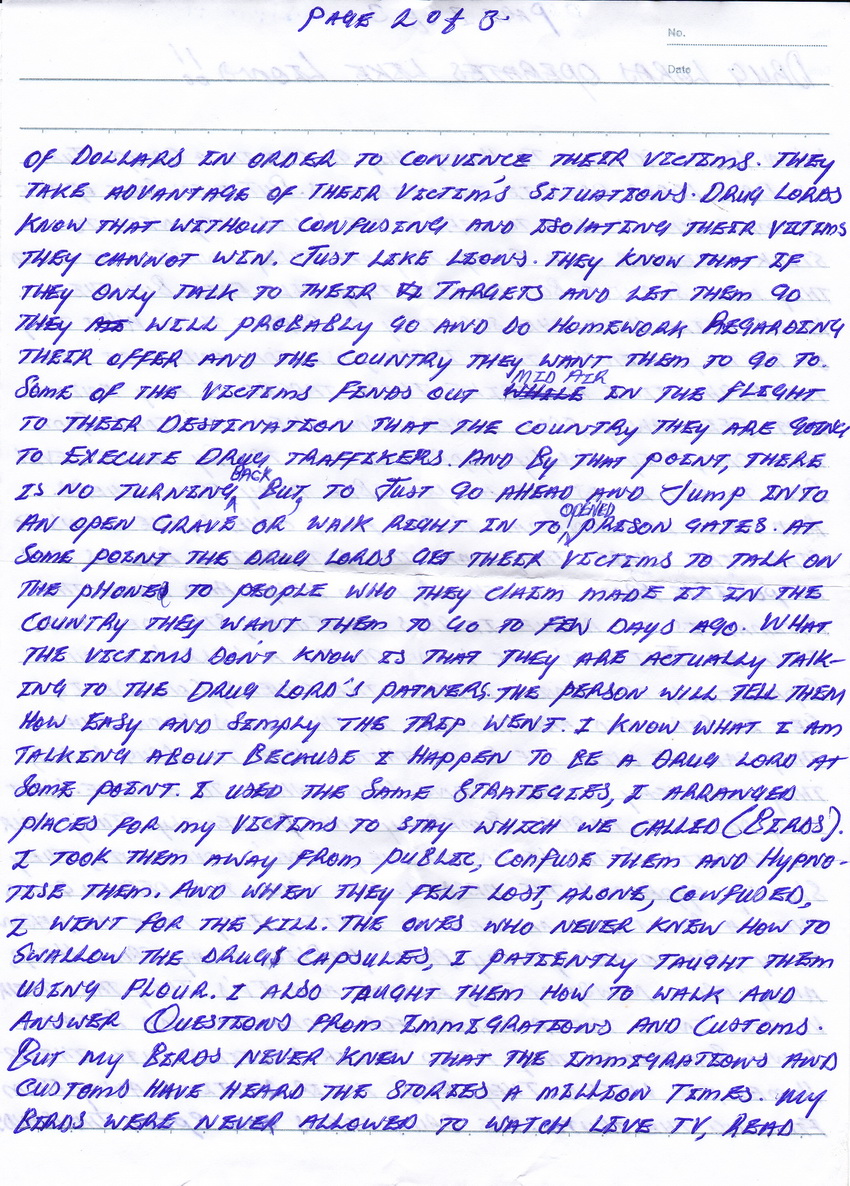 PAGE 2 of 3
No.
Date
OF DOLLARS IN ORDER TO CONVENCE THEIR VICTIMS. THEY
TAKE ADVANTAGE OF THEIR VICTIM'S SITUATIONS. DRUG LORDS
KNOW THAT WITHOUT CONFUSING AND ISOLATING THEIR VICTIMS
THEY CANNOT WIN. JUST LIKE LIONS. THEY KNOW THAT IF
THEY ONLY TALK TO THEIR TARGETS AND LET THEM GO
THEY WILL PROBABLY GO AND DO HOMEWORK REGARDING
THEIR OFFER AND THE COUNTRY THEY WANT THEM TO GO TO.
SOME OF THE VICTIMS FINDS OUT MID AIR IN THE FLIGHT
TO THEIR DESTINATION THAT THE COUNTRY THEY ARE GOING
TO EXECUTE DRUG TRAFFIKERS. AND BY THAT POINT, THERE
IS NO TURNING BACK BUT TO JUST GO AHEAD AND JUMP INTO
AN OPEN GRAVE OR WALK RIGHT IN TO OPENED PRISON GATES. AT
SOME POINT THE DRUG LORDS GET THEIR VICTIMS TO TALK ON
THE PHONES TO PEOPLE WHO THEY CLAIM MADE IT IN THE
COUNTRY THEY WANT THEM TO GO TO FEW DAYS AGO. WHAT
THE VICTIMS DON'T KNOW IS THAT THEY ARE ACTUALLY TALK-
ING TO THE DRUG LORD'S PATNERS. THE PERSON WILL TELL THEM
HOW EASY AND SIMPLY THE TRIP WENT. I KNOW WHAT I AM
TALKING ABOUT BECAUSE I HAPPEN TO BE A DRUG LORD AT
SOME POINT. I USED THE SAME STRATEGIES, I ARRANGED
PLACES FOR MY VICTIMS TO STAY WHICH WE CALLED (BIRDS).
I TOOK THEM AWAY FROM PUBLIC, CONFUSE THEM AND HYPNO-
TISE THEM. AND WHEN THEY FELT LOST, ALONE, CONFUSED,
I WENT FOR THE KILL. THE ONES WHO NEVER KNEW HOW TO
SWALLOW THE DRUGS CAPSULES, I PATIENTLY TAUGHT THEM
USING FLOUR. I ALSO TAUGHT THEM HOW TO WALK AND
ANSWER QUESTIONS FROM IMMIGRATIONS AND CUSTOMS.
BUT MY BIRDS NEVER KNEW THAT THE IMMIGRATIONS AND
CUSTOMS HAVE HEARD THE STORIES A MILLION TIMES. MY
BIRDS WERE NEVER ALLOWED TO WATCH LIVE TV, READ